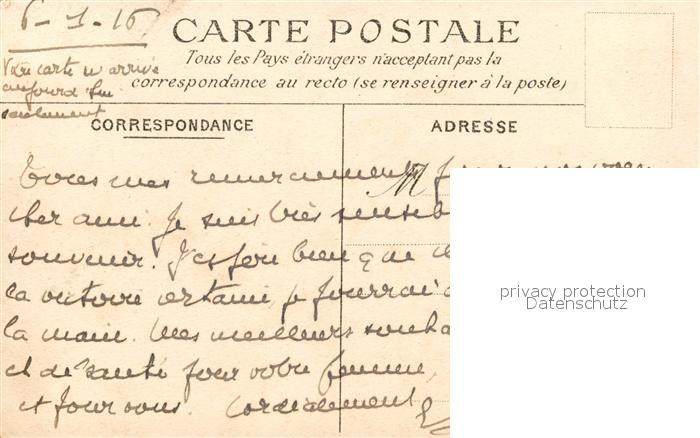 6-1-16
CARTE POSTALE
Tous les Pays étrangers n'acceptant pas la
correspondance au recto (se renseigner à la poste)
Votre carte m'arrive
aujourd'hui
seulement
CORRESPONDANCE
ADRESSE
Tous mes remerciements
M
cher ami. Je suis très
souvenir. J'espère bien que
la victoire certaine, je pourrai
la main. Mes meilleurs
et de santé pour votre femme,
et pour vous. Cordialement
privacy protection
Datenschutz